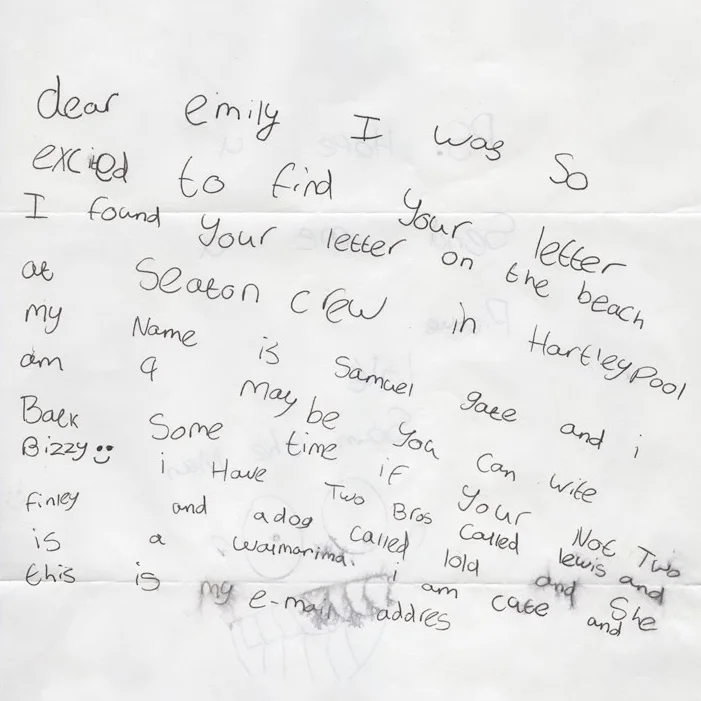 dear emily I was So
excited to find your letter
I found your letter on the beach
at Seaton crew in Hartleypool
my Name is Samuel gate and i
am 9 may be you can wite
Back Some time if your Not Two
Bizzy i Have Two Bros Called lewis and
finley and adog called lola and She
is a Waimarima. i am cate and
this is my e-mail addres